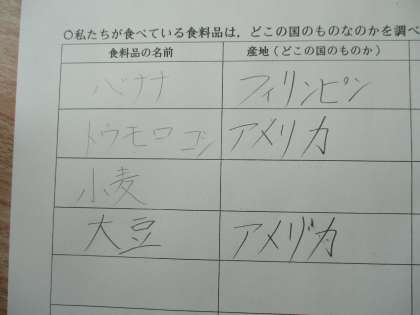 ○私たちが食べている食料品は，どこの国のものなのかを調べ
食料品の名前 産地（どこの国のものか）
バナナ フィリンピン
トウモロコシ アメリカ
小麦
大豆 アメリカ